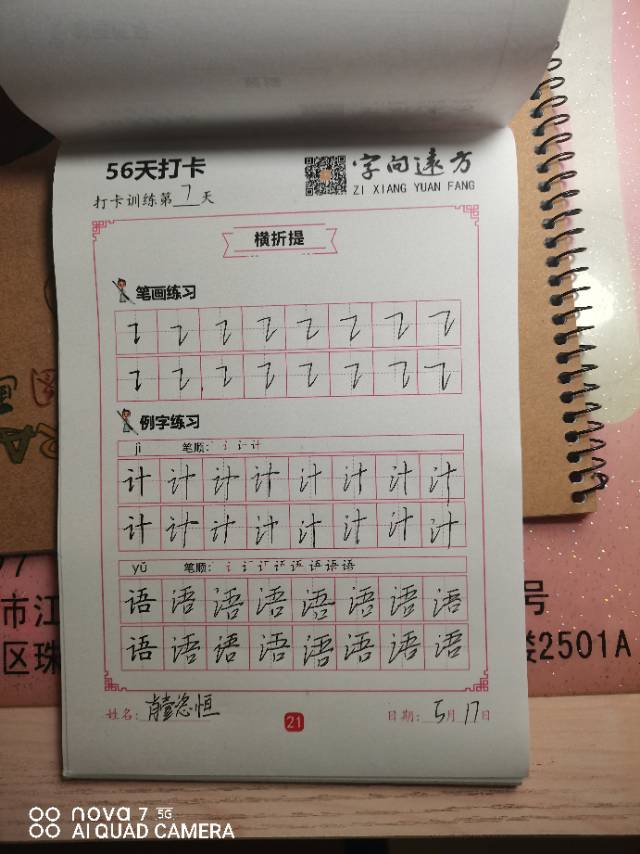 56天打卡
字向远方
ZI XIANG YUAN FANG
打卡训练第7天
横折提
笔画练习
例字练习
jì 笔顺:
计计计计计计计计
计计计计计计计计
yǔ 笔顺:
语语语语语语语语
语语语语语语语语
市江
号
区珠
2501A
姓名: 恒
21
日期: 5月17日
nova 7 5G
AI QUAD CAMERA